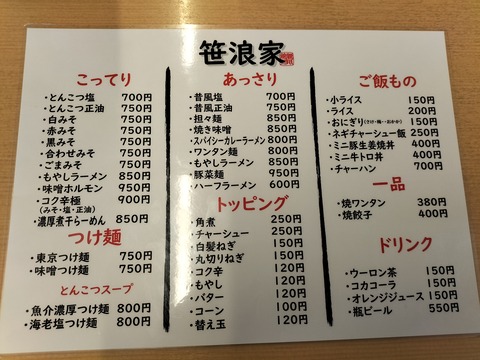 笹浪家
こってり
・とんこつ塩 700円
・とんこつ正油 750円
・白みそ 750円
・赤みそ 750円
・黒みそ 750円
・合わせみそ 750円
・ごまみそ 750円
・もやしラーメン 850円
・味噌ホルモン 950円
・コク辛極 900円
(みそ・塩・正油)
・濃厚煮干らーめん 850円
つけ麺
・東京つけ麺 750円
・味噌つけ麺 750円
とんこつスープ
・魚介濃厚つけ麺 800円
・海老塩つけ麺 800円
あっさり
・昔風塩 700円
・昔風正油 750円
・担々麺 850円
・焼き味噌 850円
・スパイシーカレーラーメン 800円
・ワンタン麺 800円
・もやしラーメン 850円
・豚菜麺 950円
・ハーフラーメン 600円
トッピング
・角煮 250円
・チャーシュー 250円
・白髪ねぎ 150円
・丸切りねぎ 150円
・コク辛 120円
・もやし 120円
・バター 120円
・コーン 100円
・替え玉 120円
ご飯もの
・小ライス 150円
・ライス 200円
・おにぎり(さけ・梅・おかか) 150円
・ネギチャーシュー飯 250円
・ミニ豚生姜焼丼 400円
・ミニ牛トロ丼 400円
・チャーハン 700円
一品
・焼ワンタン 380円
・焼餃子 400円
ドリンク
・ウーロン茶 150円
・コカコーラ 150円
・オレンジジュース 150円
・瓶ビール 550円